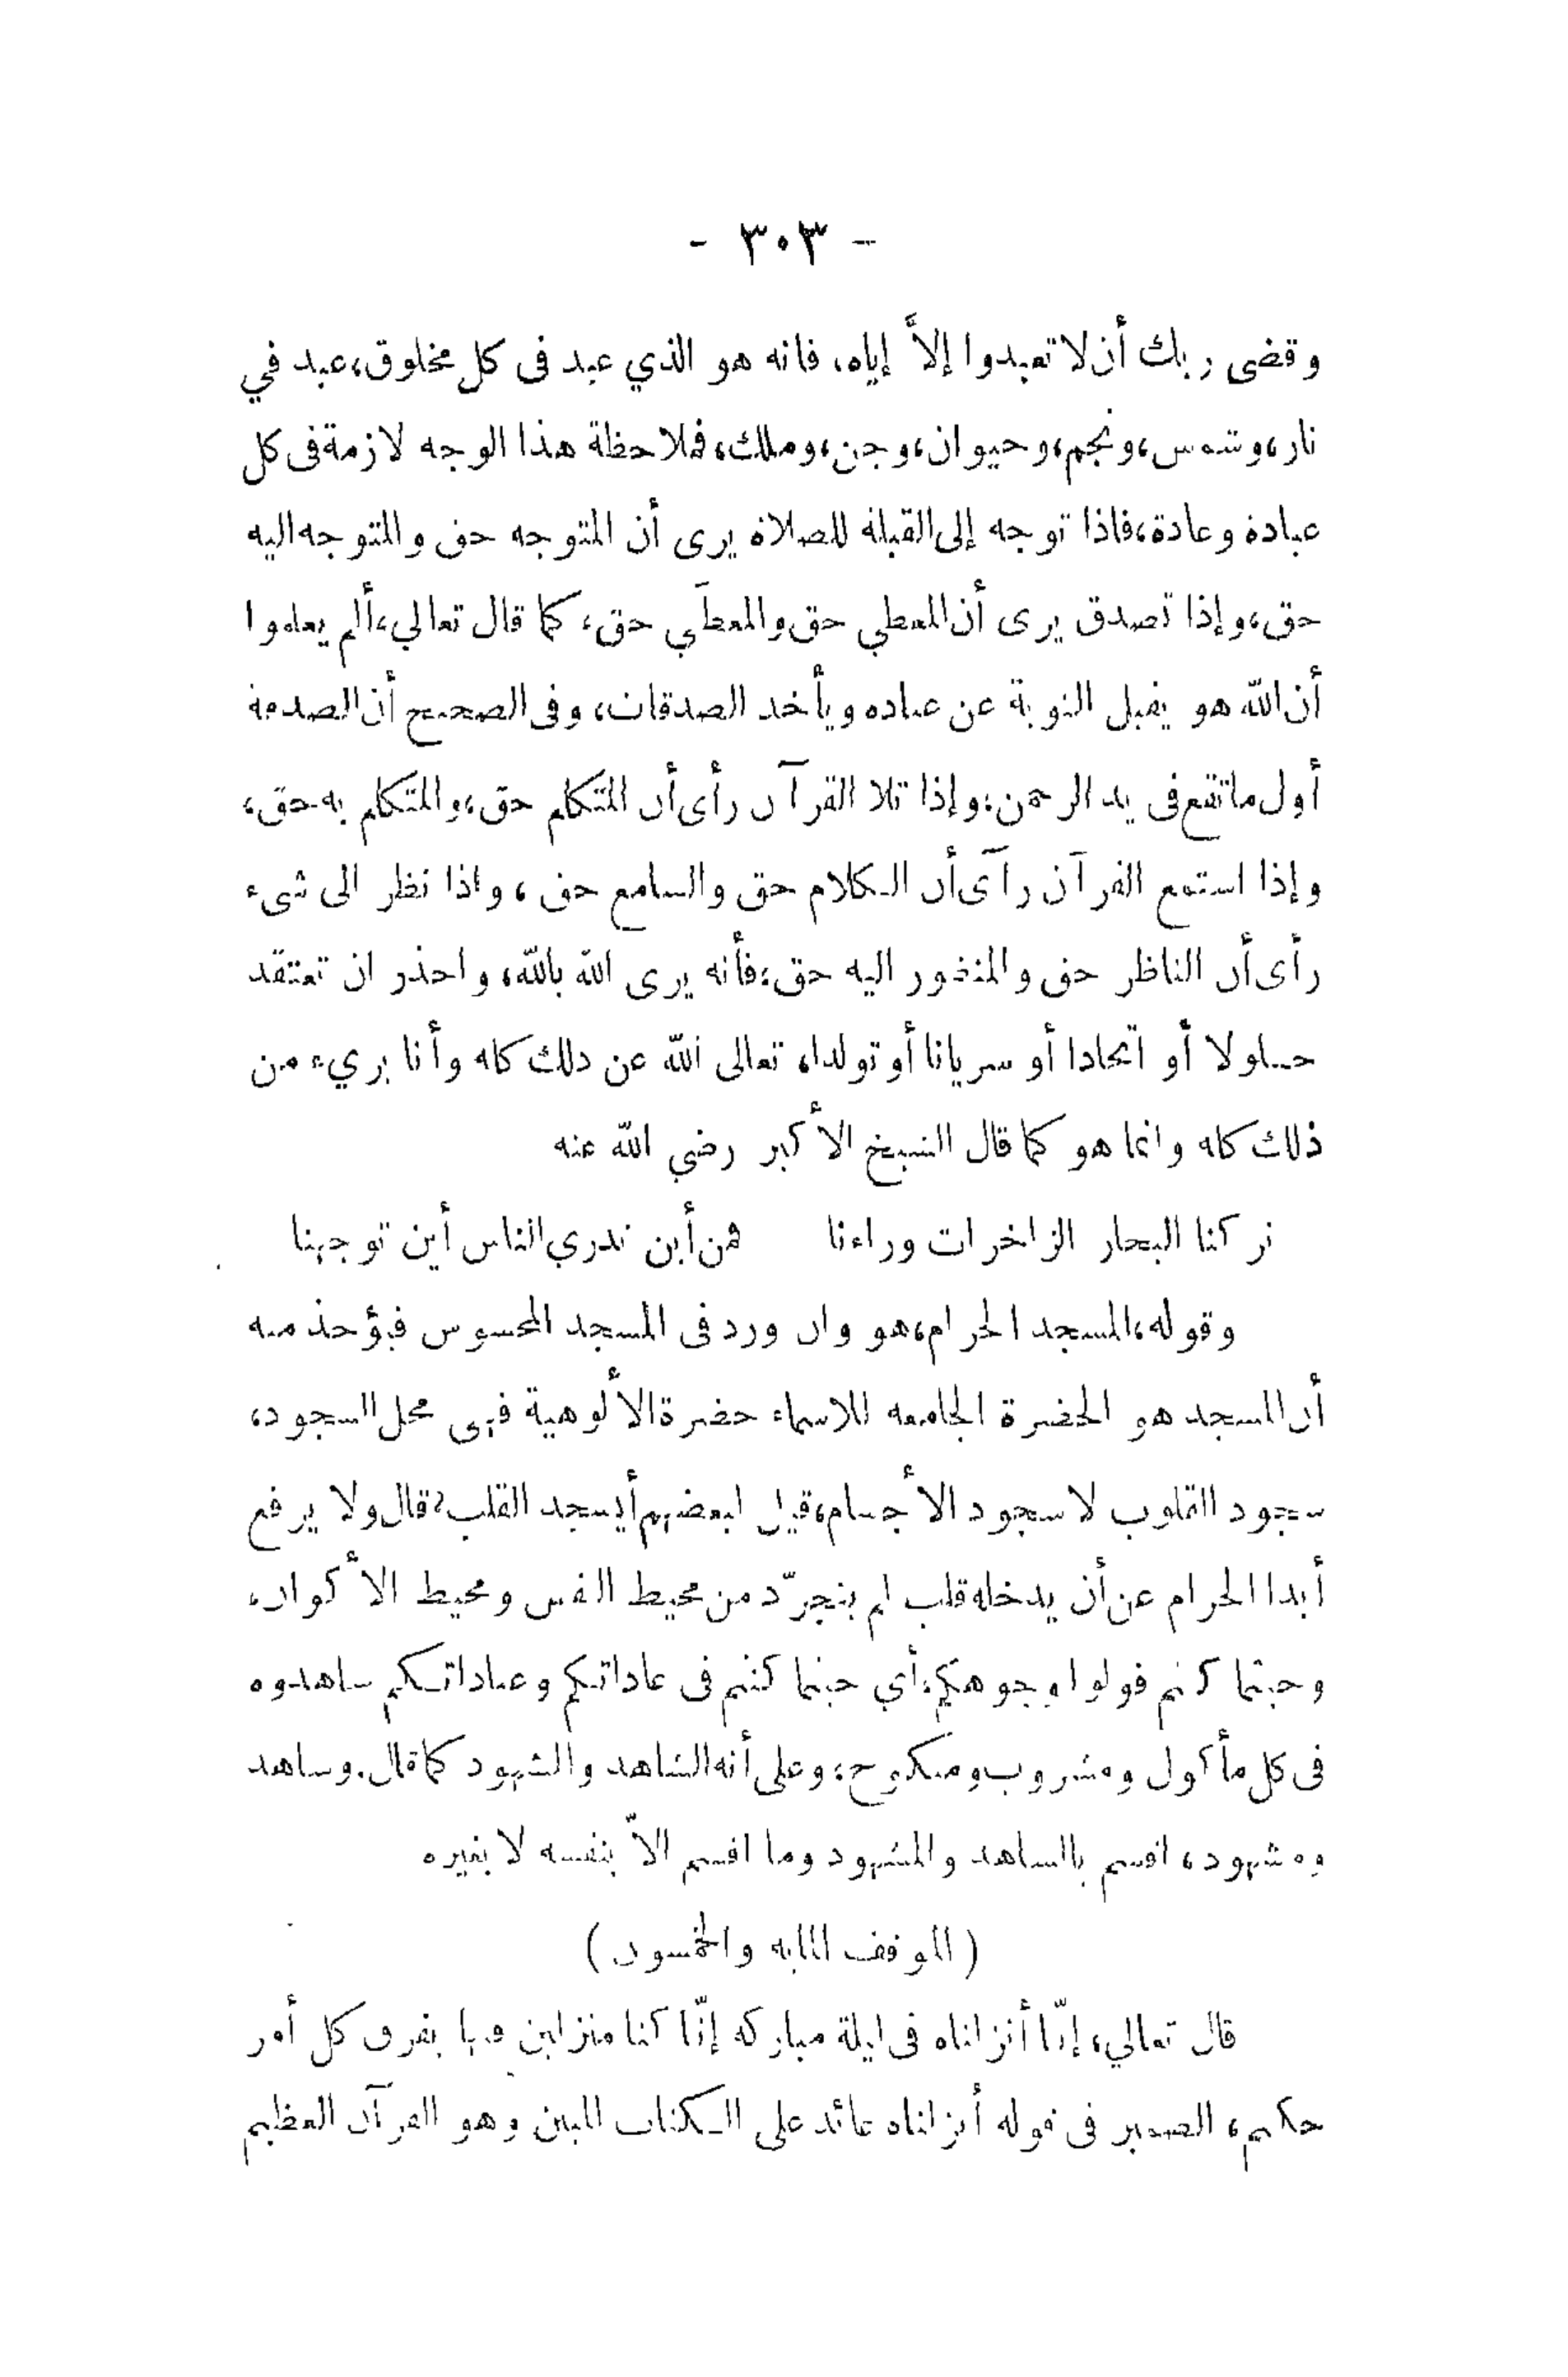 - ٣٠٣ -
وقضى ربك أن لا تعبدوا إلاَّ إياه، فانه هو الذي عبد فى كل مخلوق، عبد في
نار، وشمس، ونجم، وحيوان، وجن، وملك، فملاحظة هذا الوجه لازمة فى كل
عبادة وعادة، فاذا توجه إلى القبلة للصلاة يرى أن المتوجه حق والمتوجه اليه
حق، وإذا تصدق يرى أن المعطي حق والمعطَي حق، كما قال تعالي، ألم يعلموا
أن اللّه هو يقبل التوبة عن عباده ويأخد الصدقات، وفى الصحيح أن الصدقة
أول ما تقع فى يد الرحمن، وإذا تلا القرآن رأى أن المتكلم حق، والمتكلم به حق،
وإذا استمع القرآن رآى أن الكلام حق والسامع حق، واذا نظر الى شىء
رأى أن الناظر حق والمنظور اليه حق، فأنه يرى اللّه باللّه، واحذر ان تعتقد
حلولا أو اتحادا أو سريانا أو تولدا، تعالى اللّه عن ذلك كله وأنا بريء من
ذلك كله وانما هو كما قال الشيخ الأكبر رضي اللّه عنه
تركنا البحار الزاخرات وراءنا فمن أين تدري الناس أين توجهنا
وقوله، المسجد الحرام، هو وان ورد فى المسجد المحسوس فيؤخذ منه
أن المسجد هو الحضرة الجامعه للاسماء حضرة الألوهية فهى محل السجود،
سجود القلوب لا سجود الأجسام، قيل لبعضهم أيسجد القلب؟ قال ولا يرفع
أبدا الحرام عن أن يدخله قلب لم يتجرّد من محيط النفس ومحيط الأكوان،
وحيثما كنتم فولوا وجوهكم، أي حيثما كنتم فى عاداتكم وعباداتكم شاهدوه
فى كل مأكول ومشروب ومنكوح، وعلى أنه الشاهد والشهود كما قال. وشاهد
ومشهود، اقسم بالشاهد والمشهود وما اقسم الاّ بنفسه لا بغيره
(الموقف المايه والخمسون)
قال تعالي، إنّا أنزلناه فى ليلة مباركه إنّا كنا منزلين فيها يفرق كل أمر
حكيم، الضمير فى قوله أنزلناه عائد على الكتاب المبين وهو القرآن العظيم